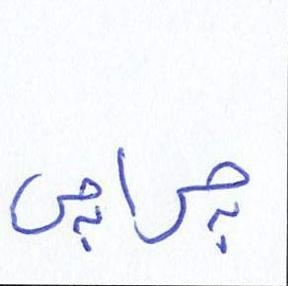 چراچی